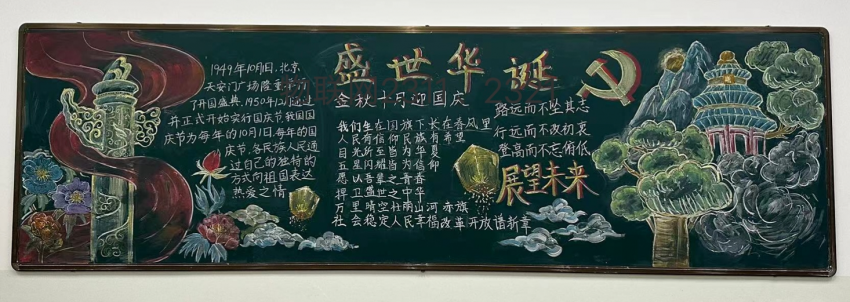 1949年10月1日,北京
天安门广场隆重举行
了开国盛典,1950年12月通过
并正式开始实行国庆节我国国
庆节为每年的10月1日,每年的国
庆节,各民族人民通
过自己的独特的
方式向祖国表达
热爱之情
盛世华诞
金秋十月迎国庆
我们生在国旗下长在春风里
人民有信仰民族有希望
目光所至皆为华夏
五星闪耀皆为信仰
愿以吾辈之青春
捍卫盛世之中华
万里晴空壮丽山河赤旗
社会稳定人民幸福改革开放谱新章
路远而不坠其志
行远而不改初衷
登高而不忘俯低
展望未来